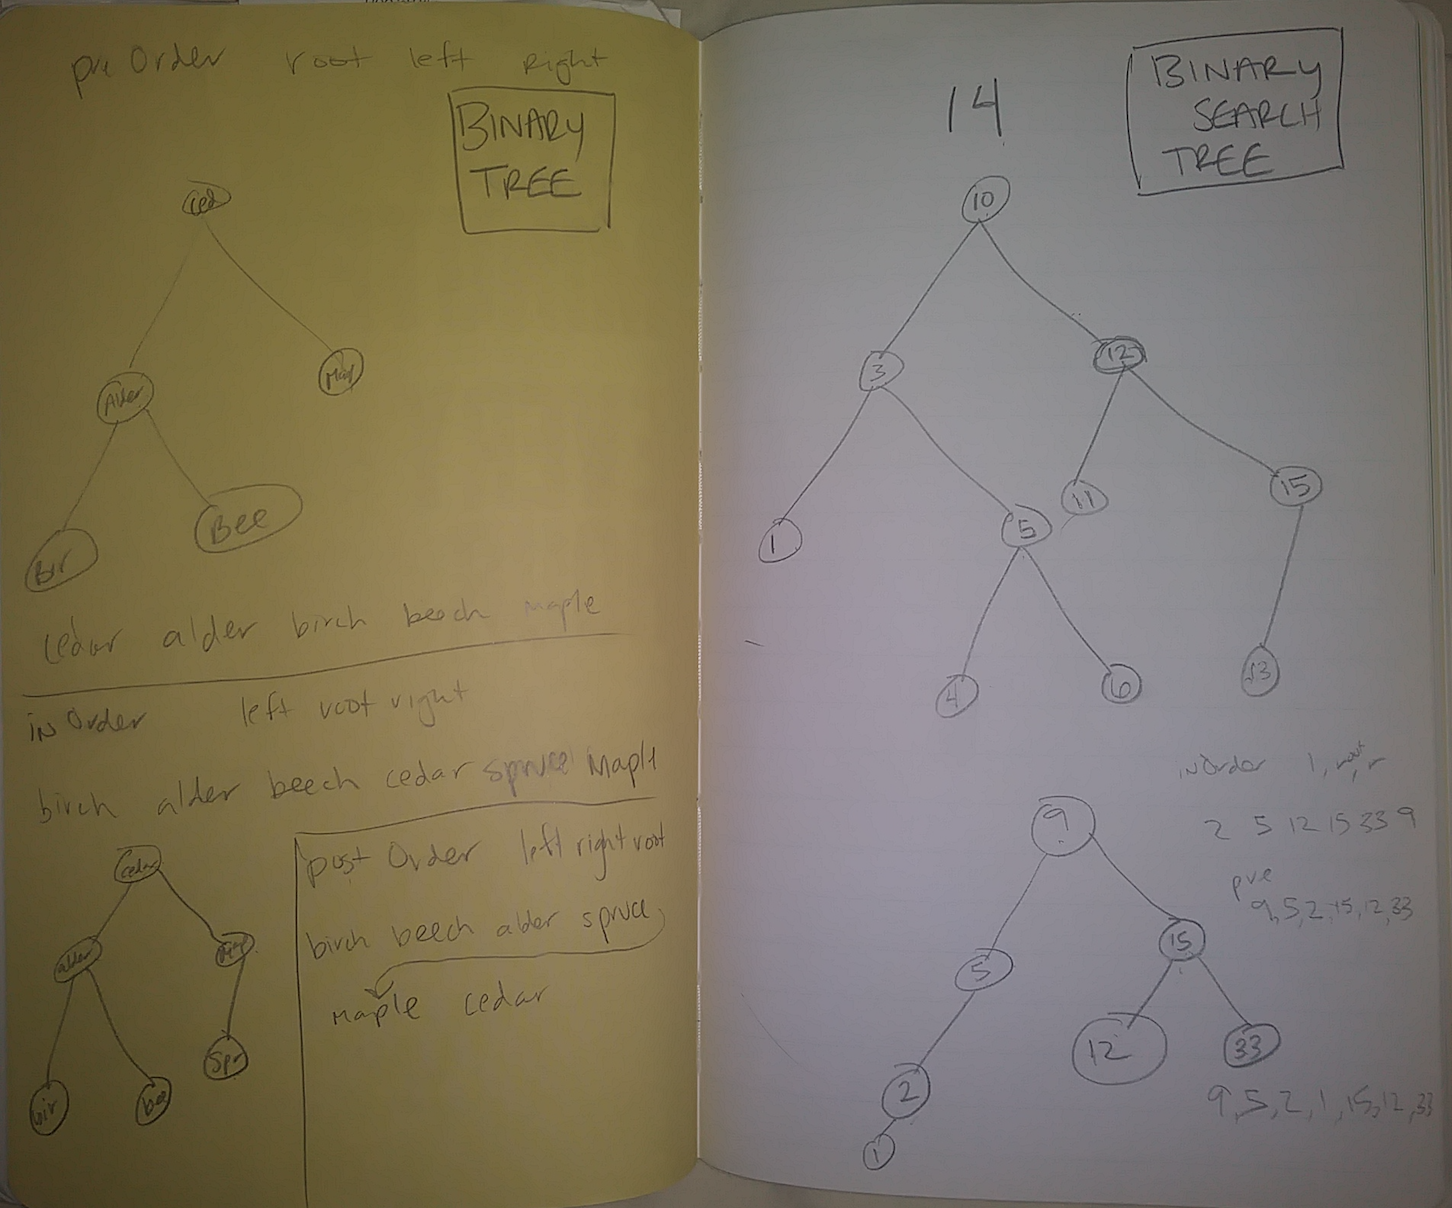 pre Order root left Right
BINARY
TREE
Ced
Alder
Map
Bir
Bee
cedar alder birch beech maple
in Order left root right
birch alder beech cedar spruce Maple
Cedar
alder
Map
Spr
bir
bee
post Order left right root
birch beech alder spruce,
Maple cedar
14
BINARY
SEARCH
TREE
10
3
12
1
5
11
15
4
6
13
inOrder l, root, r
2 5 12 15 33 9
pre
9,5,2,15,12,33
9
5
15
2
12
33
1
9,5,2,1,15,12,33